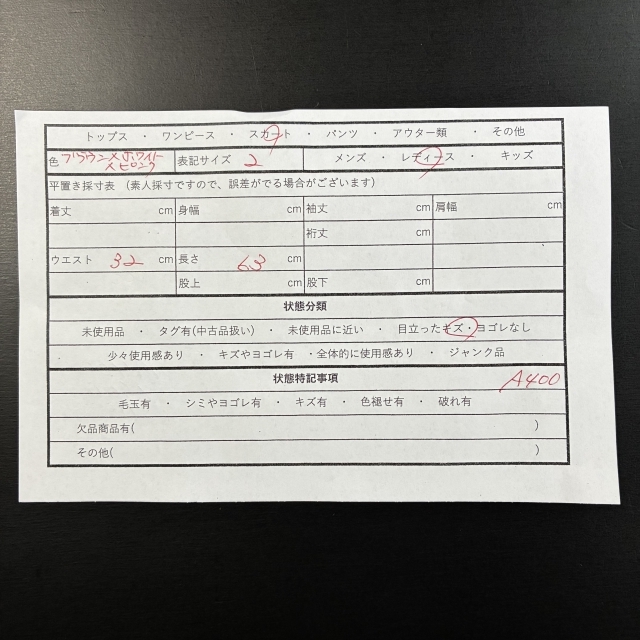 トップス ・ ワンピース ・ スカート ・ パンツ ・ アウター類 ・ その他
色 ブラウン×ホワイト×ピンク 表記サイズ 2 メンズ ・ レディース ・ キッズ
平置き採寸表 (素人採寸ですので、誤差がでる場合がございます)
着丈 cm 身幅 cm 袖丈 cm 肩幅 cm
裄丈 cm
ウエスト 32 cm 長さ 63 cm
股上 cm 股下 cm
状態分類
未使用品 ・ タグ有(中古品扱い) ・ 未使用品に近い ・ 目立ったキズ・ヨゴレなし
少々使用感あり ・ キズやヨゴレ有 ・全体的に使用感あり ・ ジャンク品
状態特記事項 A400
毛玉有 ・ シミやヨゴレ有 ・ キズ有 ・ 色褪せ有 ・ 破れ有
欠品商品有( )
その他( )